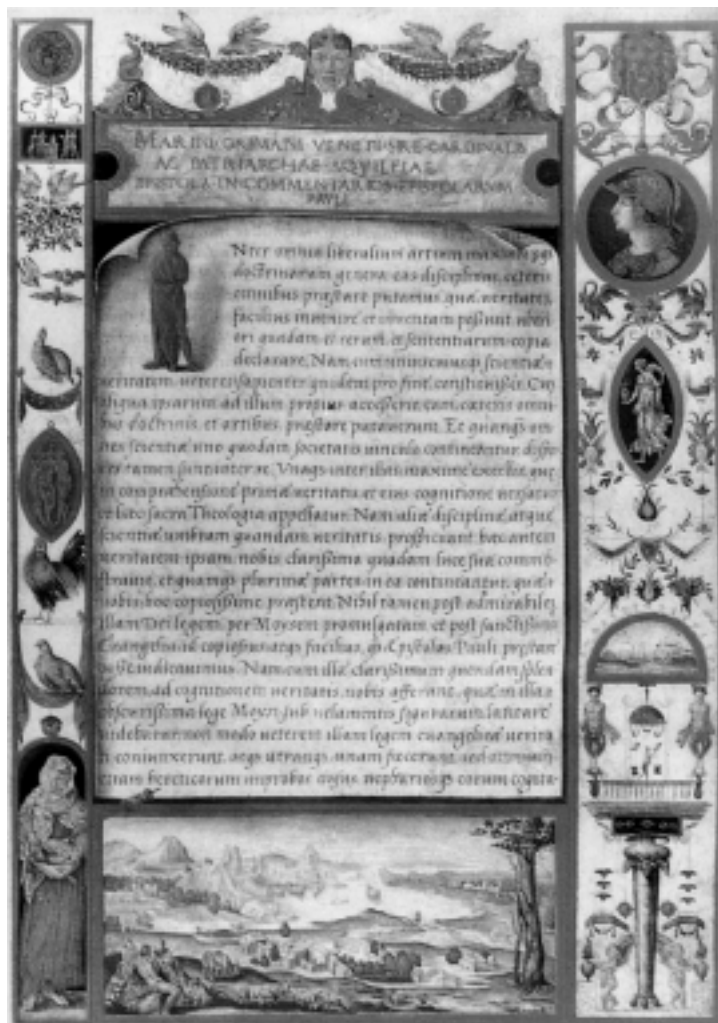 MARINI GRIMANI VENETI SRE CARDINALIS
AC PATRIARCHAE AQVILEIAE
EPISTOLA IN COMMENTARIOS EPISTOLARVM
PAVLI
Nter omnia liberalium artium
doctrinarum genera, eas disciplinas, ceteris
omnibus præstare putamus, quæ veritatem
facilius et inventam possunt uberi
ori quadam et rerum, et sententiarum copia
declarare. Nam cum scientiæ
veritatem veteres sapienter quidem pro fine constituissent. Cum
aliqua ipsarum ad illum propius accesserit, eam, cæteris omni
bus doctrinis, et artibus, præstare putaverunt. Et quanqs om
nes scientiæ uno quodam societatis vinculo contineantur, diffe
res tamen sunt inter se. Unaqs inter illas maxime excellit, quæ
in comprehensione primæ veritatis, et eius cognitione versatur
et hæc sacra Theologia appellatur. Nam aliæ disciplinæ atque
scientiæ umbram quandam veritatis, proficiunt hæc autem
veritatem ipsam nobis clarissima quadam luce sua commō
straint, et quamqs plurimæ partes in ea contineantur, quæ
nobis, hoc copiosissime præstent. Nihil tamen post admirabilem
illam Dei legem, per Moysem promulgatam, et post sanctissima
Evangelia, id copiosius atqs facilius, qs Epistolas Pauli præstare
iudicavimus. Nam, cum illæ clarissimum quendam splen
dorem, ad cognitionem veritatis, nobis afferant, quæ in illa
obscurissima lege Moysi, sub velamentis figurarum, latitare
videbatur, non modo veterem illam legem evangelicæ verita
ti coniunxerunt, atqs utranqs, unam fecerunt, sed
etiam hæreticorum improbos ausus, nephariosqs eorum cogita-